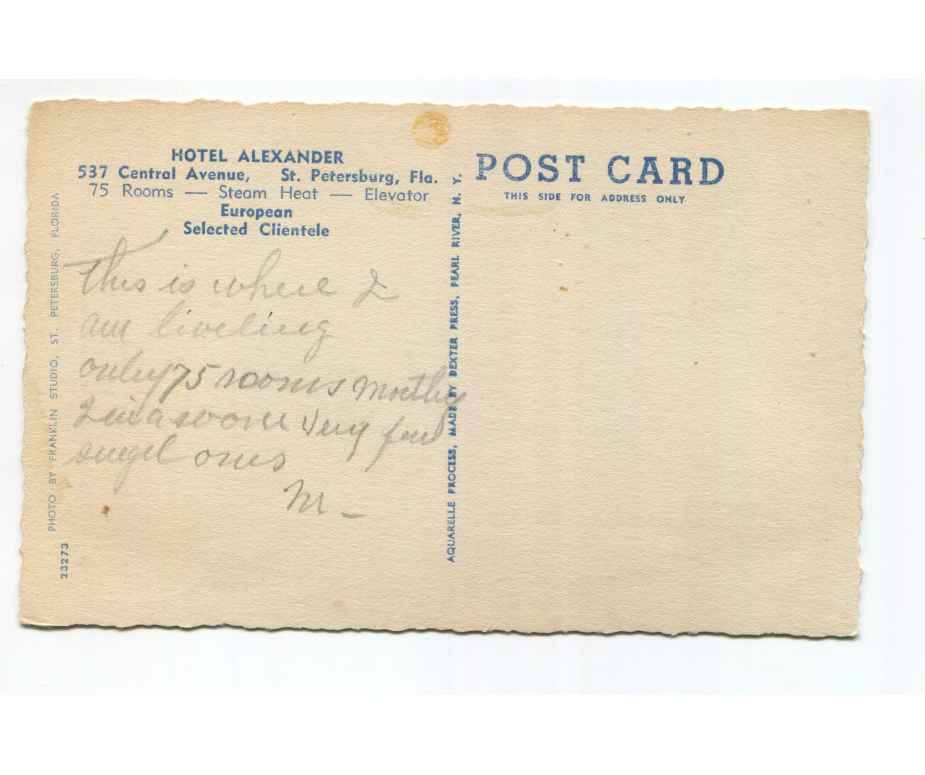 HOTEL ALEXANDER
537 Central Avenue, St. Petersburg, Fla.
75 Rooms — Steam Heat — Elevator
European
Selected Clientele
This is where I
am liveling
only 75 rooms mostly
2 in a room Very few
singel ones
M —
PHOTO BY FRANKLIN STUDIO, ST. PETERSBURG, FLORIDA
23273
AQUARELLE PROCESS, MADE BY DEXTER PRESS, PEARL RIVER, N. Y.
POST CARD
THIS SIDE FOR ADDRESS ONLY